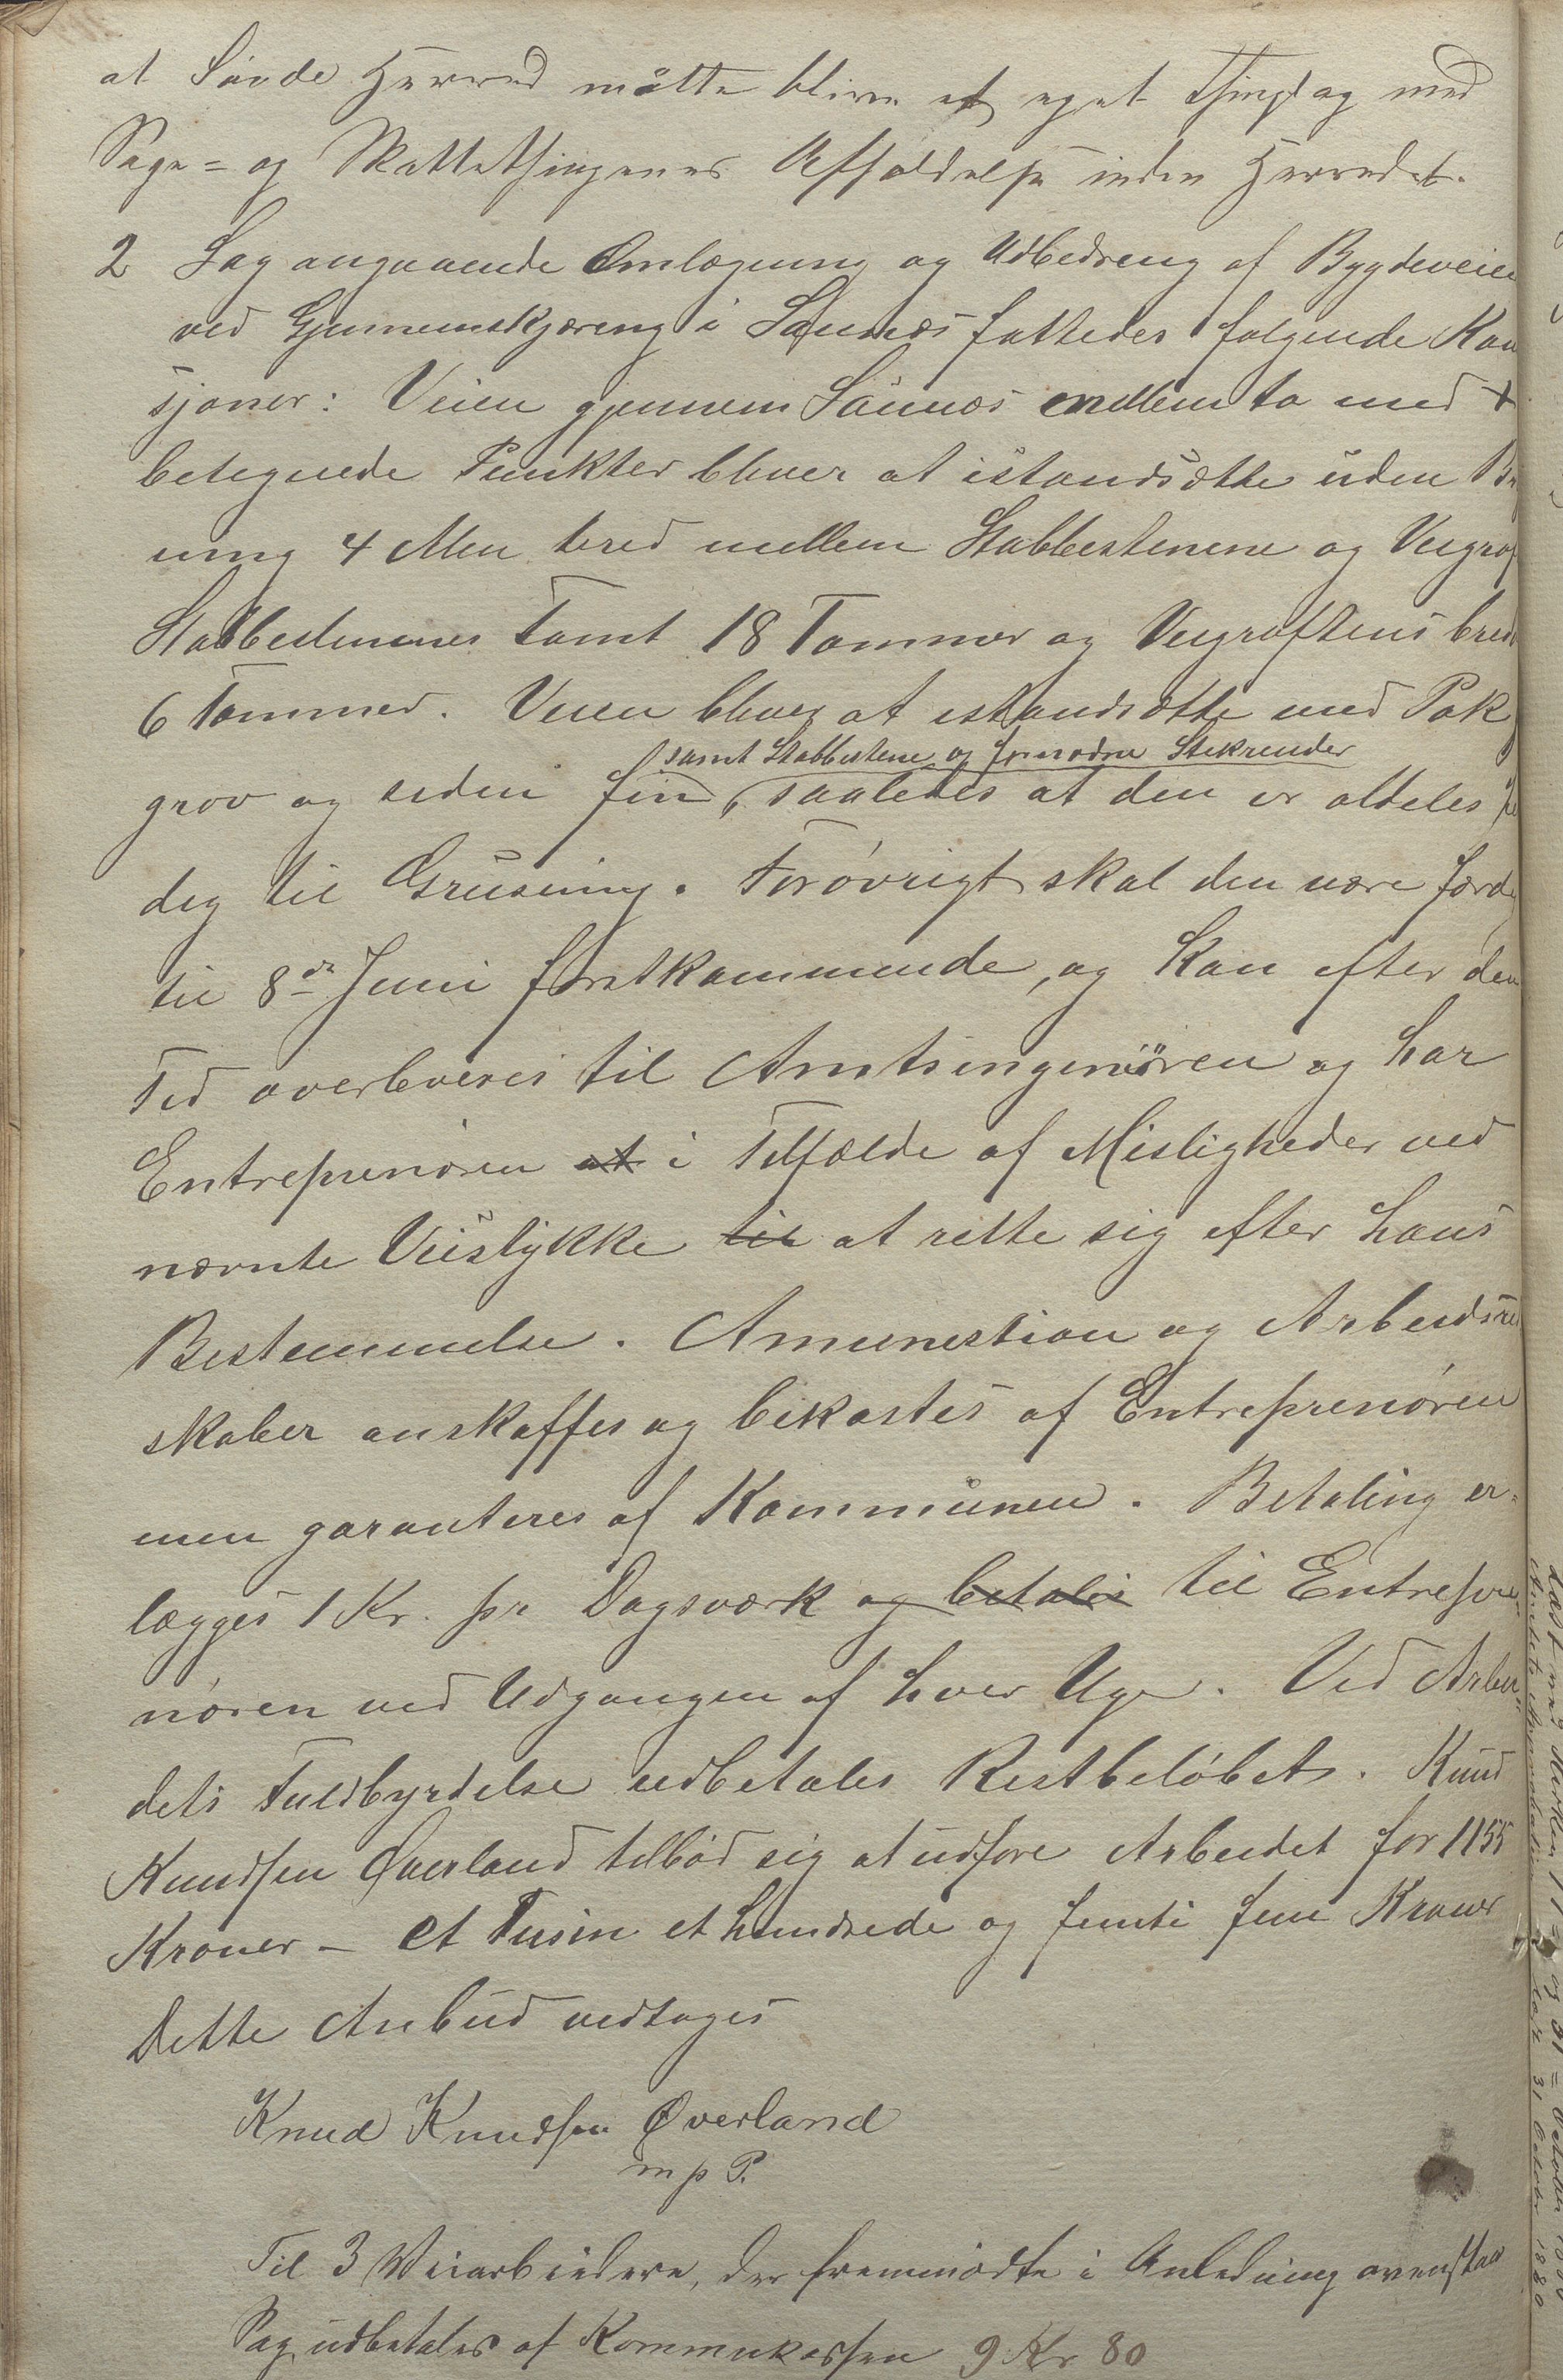 at Søvde Herred måtte blive et eget Thinglag med
Sage= og Skattethingenes Afholdelse inden Herredet.
2 Sag angaaende Omlægning og Udbedreng af Bygdeveien
ved Gjennemskjæreng i Saunæs fattedes følgende Kon
sjoner: Veien gjennem Saunæs mellem to med +
betegnede Punkter bliver at istandsætte uden B
ning 4 Alen bred mellem Stabbestenene og Veigrøf
Stabbestenenes Tomt 18 Tommer og Veigrøftens bred
6 Tommer. Veien bliver at istandsætte med Puk
samt Stabbestene og fornødne Stikrender
grov og siden fin, saaledes at den er aldeles
dig til Grusning. Forøvrigt skal den være færdig
til 8de Juni førstkommende, og kan efter den
Tid overleveres til Amtsingeniøren og har
Entreprenøren at i Tilfælde af Misligheder ved
nævnte Veistykke til at rette sig efter hans
Bestemmelse. Amunestion og Arbeidsred
skaber anskaffes og bekostes af Entreprenøren
men garanteres af Kommunen. Betaling er-
lægges 1 Kr. pr Dagsværk og betales til Entrepre-
nøren ved Udgangen af hver Uge. Ved Arbei-
dets Fuldbyrdelse udbetales Restbeløbet. Knud
Knudsen Øverland tilbød sig at udføre Arbeidet for 1155
Kroner - et Tusin et hundrede og femti fem Kroner
Dette Anbud vedtoges
Knud Knudsen Øverland
m p P.
Til 3 Veiarbeidere, der fremmødte i Anledning ovenstaa
Sag, udbetales af Kommukassen 9 Kr 80